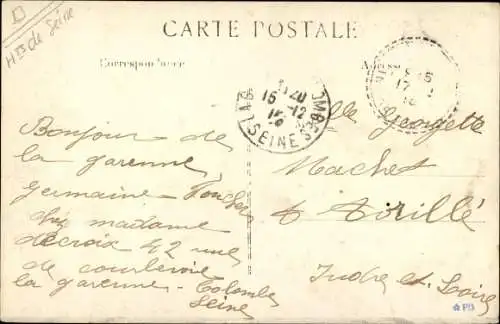 Hts de Seine
CARTE POSTALE
Correspondance
LA GARENNE-COLOMBES
SEINE
15-12
Bonjour de
la garenne
germaine
chez madame
decroix 42 rue
de courbevoie
la garenne - Colombes
Seine
Mlle Georgette
Machet
à Tirillé
Indre et Loire
PB